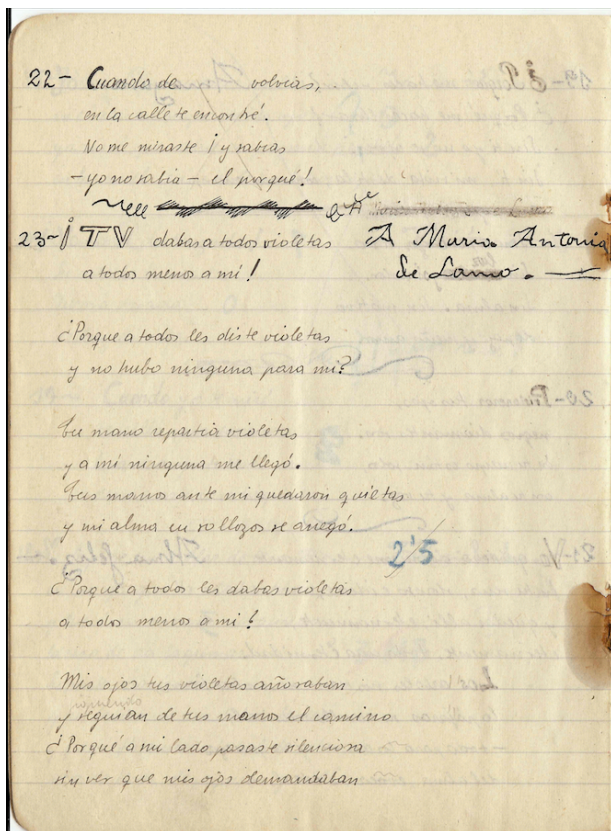 22- Cuando de volvias,
en la calle te encontré.
No me miraste ¡y sabias
- yo no sabia - el porqué!
A
23- ¡TV dabas a todos violetas
A Maria Antonia
de Lamo.
a todos menos a mí!
¿Porque a todos les diste violetas
y no hubo ninguna para mi?
Tu mano repartia violetas
y a mí ninguna me llegó.
Tus manos ante mi quedaron quietas
y mi alma en sollozos se anegó.
2'5
¿Porqué a todos les dabas violetas
a todos menos a mi?
Mis ojos tus violetas añoraban
y seguian de tus manos el camino
¿Porqué a mi lado pasaste silenciosa
sin ver que mis ojos demandaban